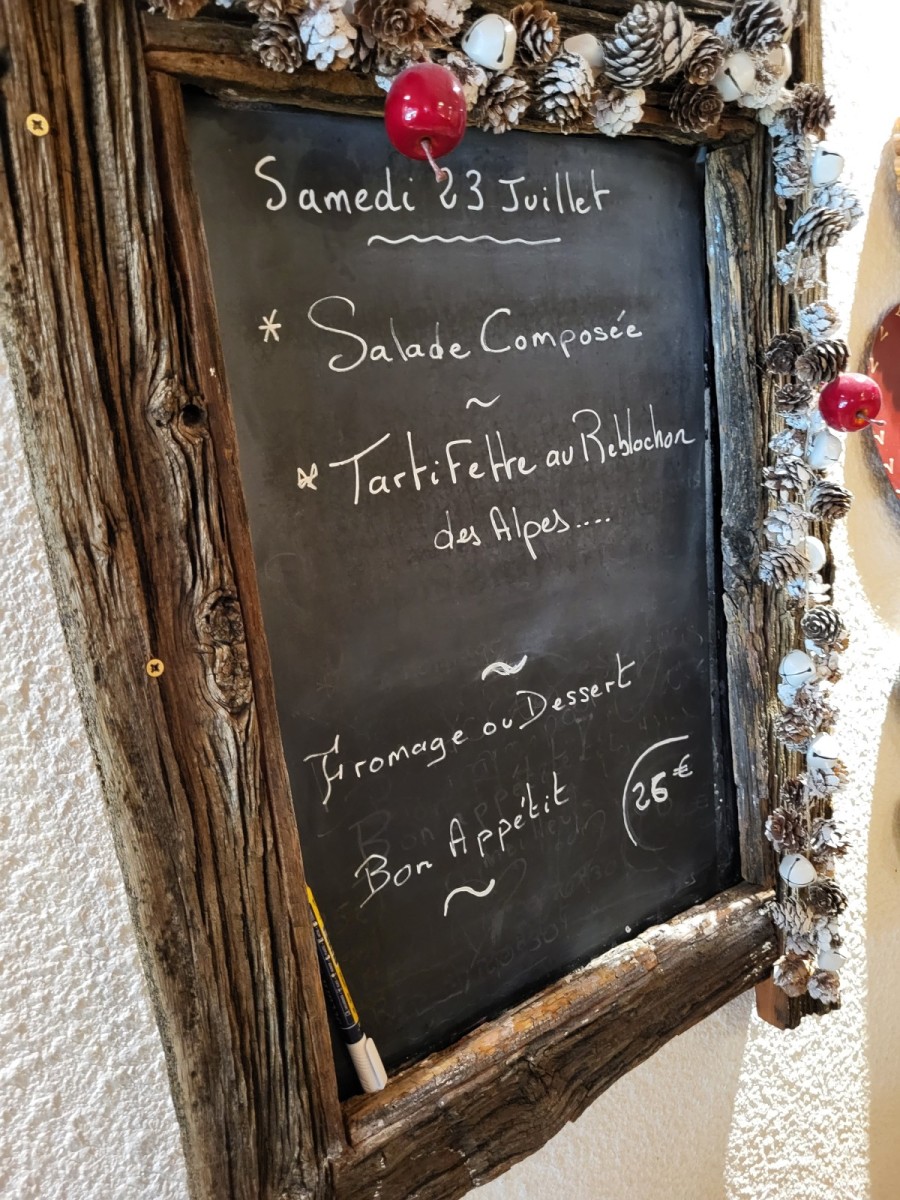 Samedi 23 Juillet
* Salade Composée
~
* Tartifette au Reblochon
des Alpes....
~
Fromage ou Dessert
26€
Bon Appétit
~